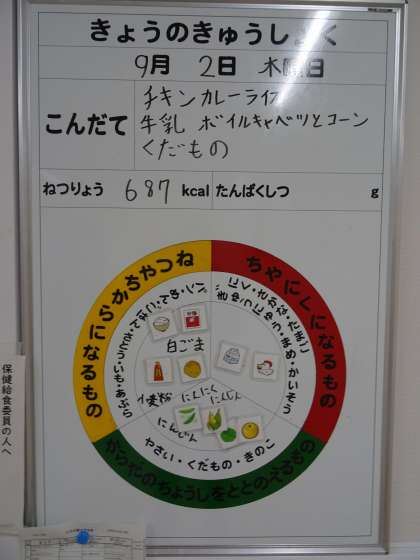 きょうのきゅうしょく
9月 2日 木曜日
こんだて
チキンカレーライス
牛乳 ボイルキャベツとコーン
くだもの
ねつりょう 687 kcal たんぱくしつ g
ねつやちからになるもの
ちやにくになるもの
にく・さかな・たまご
ぎゅうにゅう・まめ・かいそう
白ごま
にんにく
にんじん
にんじん
やさい・くだもの・きのこ
からだのちょうしをととのえるもの
保健給食委員の人へ